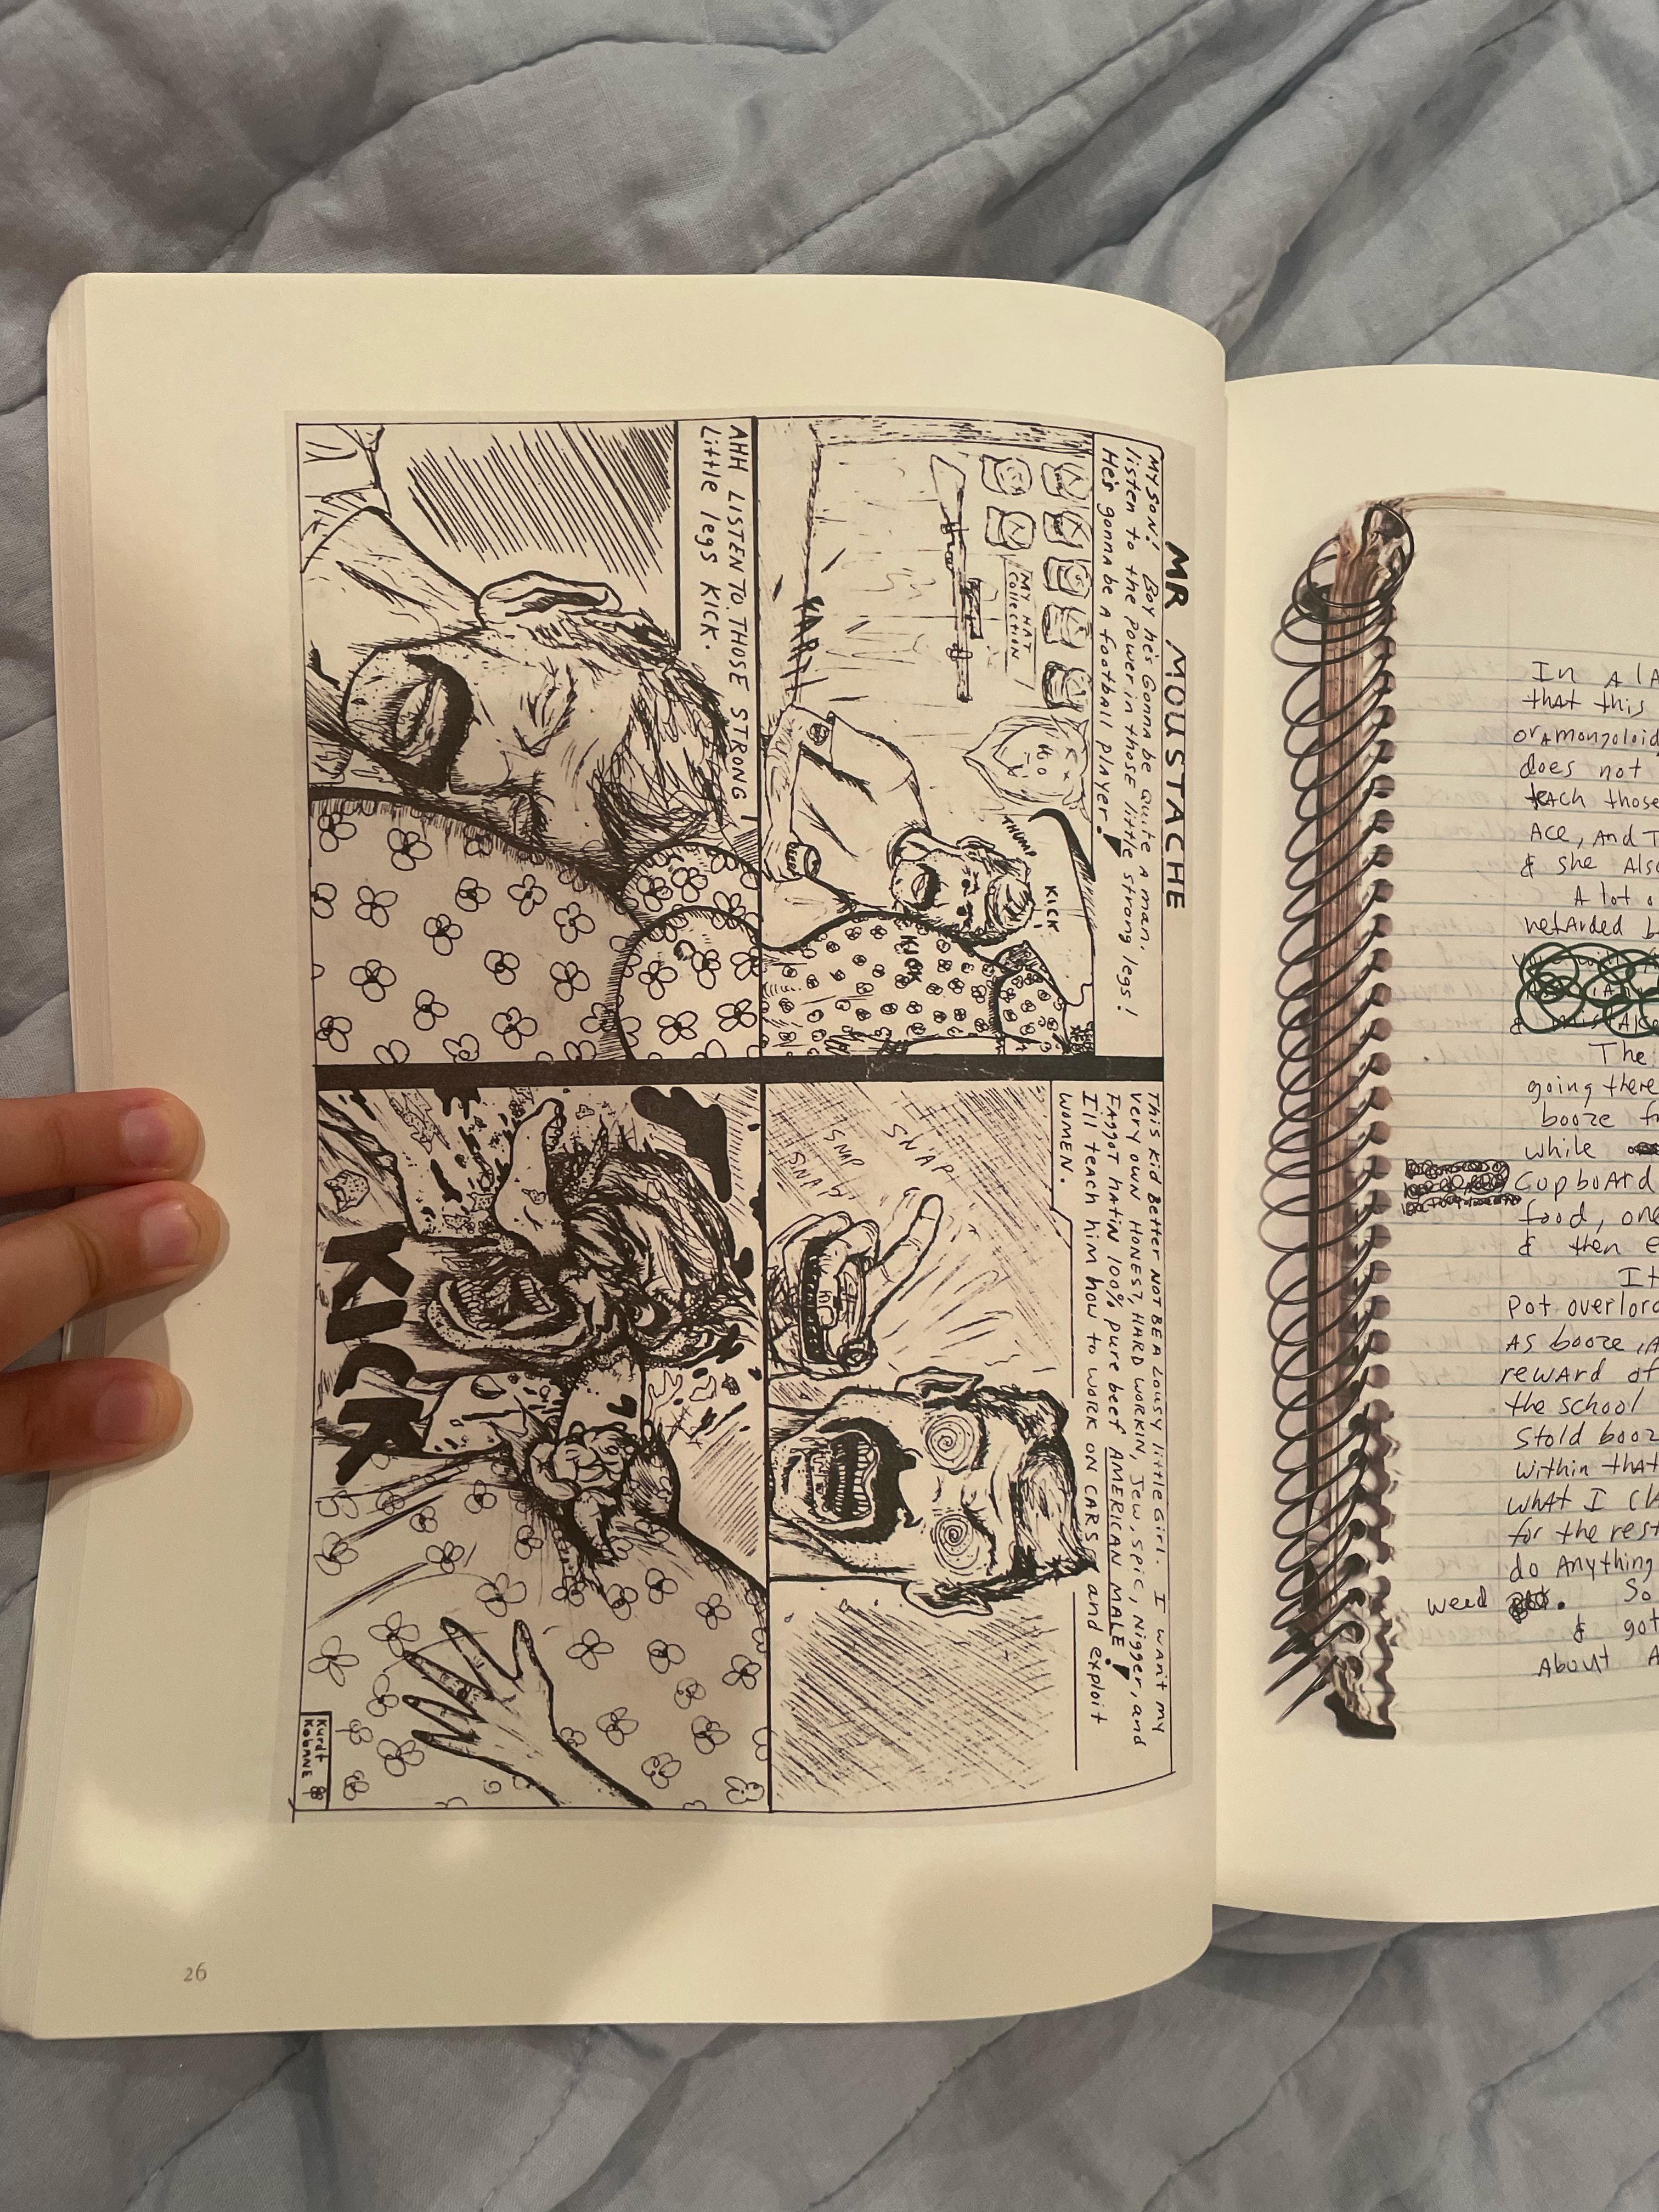 MR MOUSTACHE
MY SON! Boy he's Gonna be Quite A man.
listen to the power in those little strong legs!
He's gonna be A football player!
MY HAT
Collection
THUMP
KICK
KICK
BEER
This kid Better NOT BE A Lousy little Girl. I want my
very own HONEST, HARD WORKIN, Jew, spic, Nigger, and
FAggot hatin 100% pure beef AMERICAN MALE!
I'll teach him how to work on CARS and exploit
WOMEN.
SNAP
SNAP
SNAP
AHH LISTEN TO THOSE STRONG
Little legs KICK.
KICK
Kurdt
Kobane
26
In A
that this
or A mongoloid,
does not
teach those
Ace, And
& she Also
A lot
retarded
& mistake
The
going there
booze
while
Cupboard
food, one
& then
It
Pot overlord
As booze,
reward of
the school
Stold booze
within that
what I
for the rest
do Anything
weed . So
& got
About